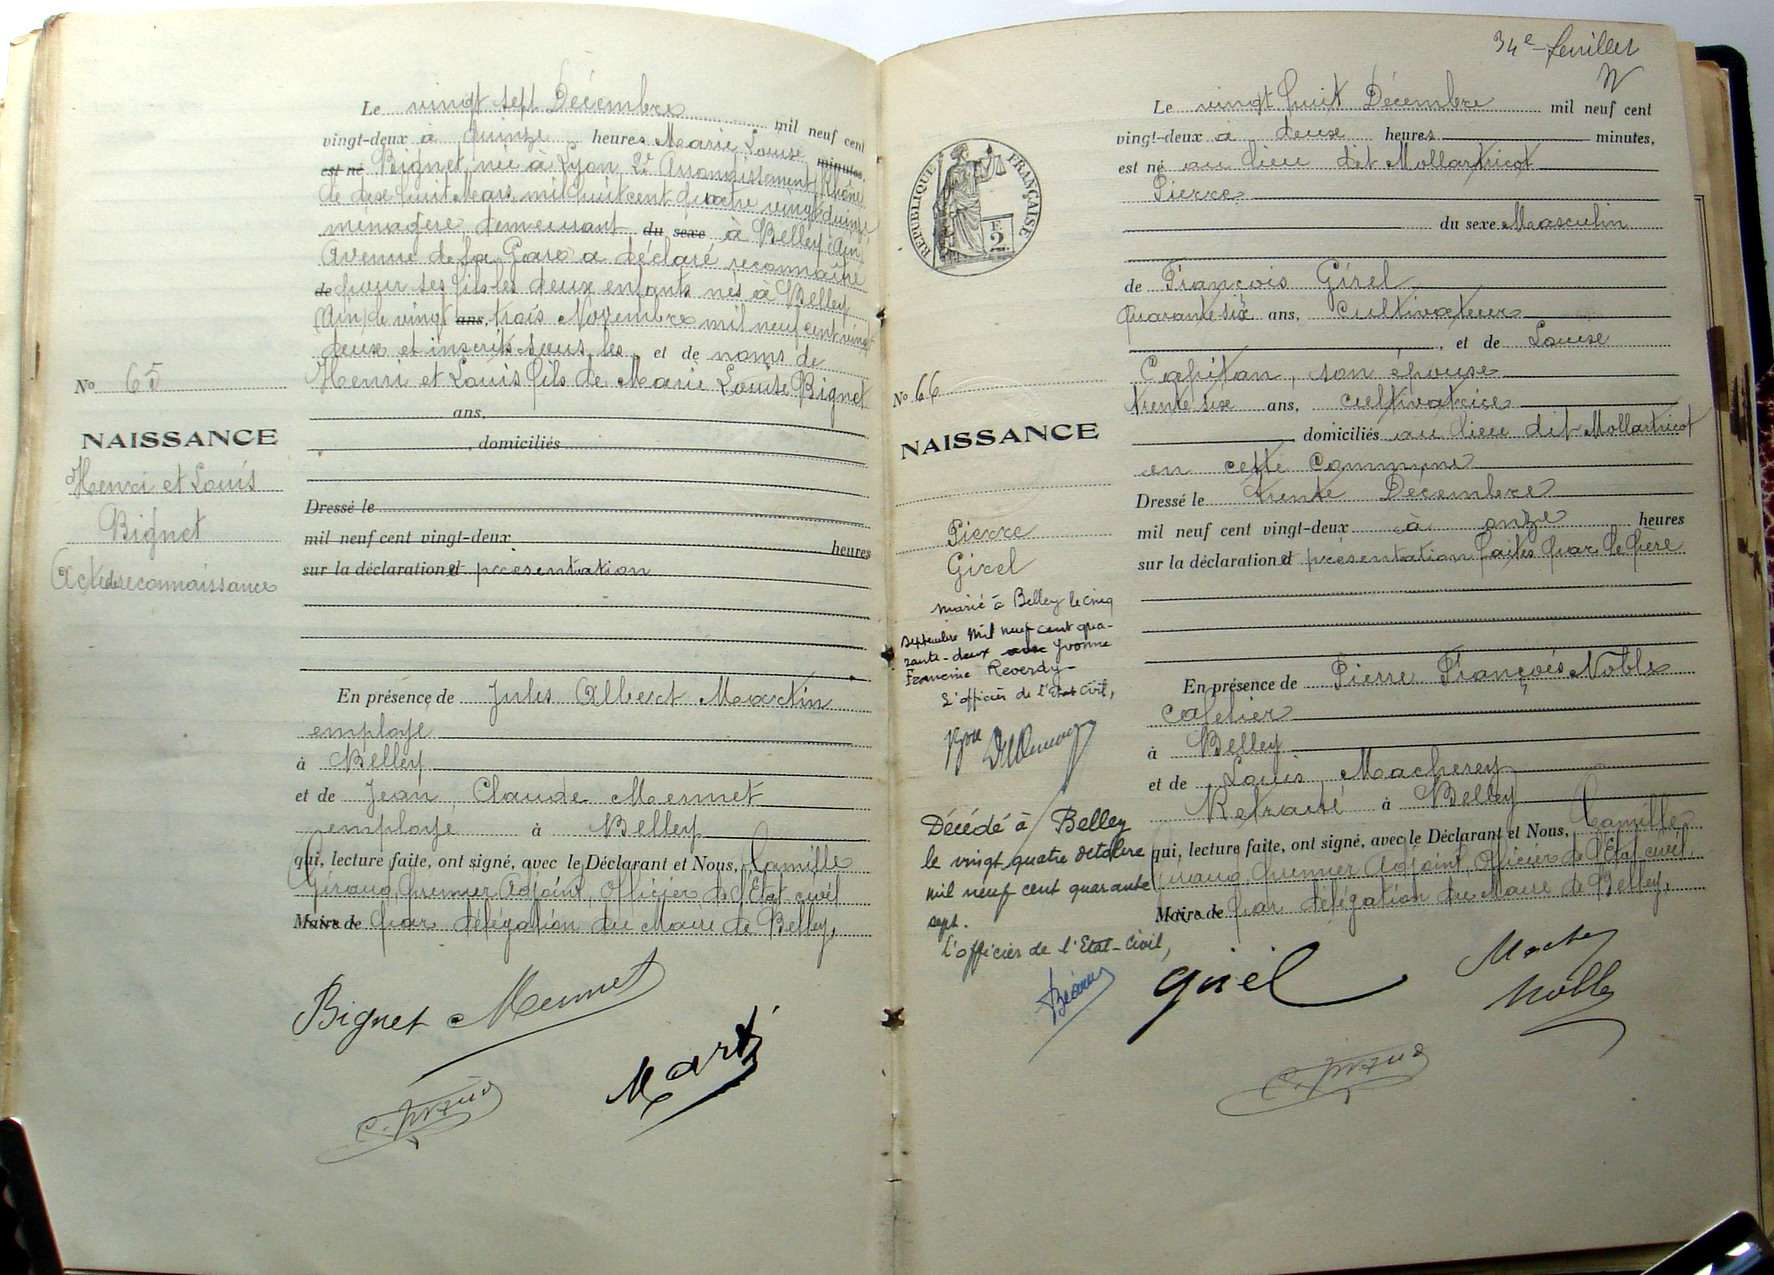 Le vingt sept Décembre mil neuf cent
vingt-deux à quinze heures Marie Louise minutes,
est né Bignet, née à Lyon, 2e Arrondissement, Rhône
le dix huit Mars mil huit cent quatre vingt quinze
ménagère demeurant du sexe à Belley (Ain)
Avenue de la Gare a déclaré reconnaître
de pour ses fils les deux enfants nés à Belley
(Ain) le vingt ans, trois Novembre mil neuf cent vingt
deux et inscrits sous les, et de noms de
Henri et Louis fils de Marie Louise Bignet
ans,
, domiciliés
Dressé le
mil neuf cent vingt-deux heures
sur la déclaration et présentation
En présence de Jules Albert Martin
employé
à Belley
et de Jean Claude Mermet
employé à Belley
qui, lecture faite, ont signé, avec le Déclarant et Nous, Camille
Giraud, premier Adjoint, Officier de l'Etat civil
Maire de par délégation du Maire de Belley,
Bignet Mermet
Marti
C. Giraud
No 65
NAISSANCE
Henri et Louis
Bignet
Acte de reconnaissance
34e feuillet
Le vingt huit Décembre mil neuf cent
vingt-deux à deux heures minutes,
est né au lieu dit Mollartricot
Pierre
du sexe Masculin
de François Girel
quarante six ans, cultivateur
, et de Louise
Capitan, son épouse
trente six ans, cultivatrice
domiciliés au lieu dit Mollartricot
en cette Commune
Dressé le trente Décembre
mil neuf cent vingt-deux à onze heures
sur la déclaration et présentation faites par le père
En présence de Pierre François Noblé
cafetier
à Belley
et de Louis Macherey
Retraité à Belley
qui, lecture faite, ont signé, avec le Déclarant et Nous, Camille
Giraud, premier Adjoint, Officier de l'Etat civil,
Maire de par délégation du Maire de Belley,
Girel
Noble
C. Giraud
REPUBLIQUE FRANÇAISE
2 F.
No 66
NAISSANCE
Pierre
Girel
Marié à Belley le cinq
septembre mil neuf cent qua-
rante-deux avec Yvonne
Francine Reverdy
L'officier de l'Etat Civil,
Décédé à Belley
le vingt quatre octobre
mil neuf cent quarante
sept.
L'officier de l'Etat-Civil,